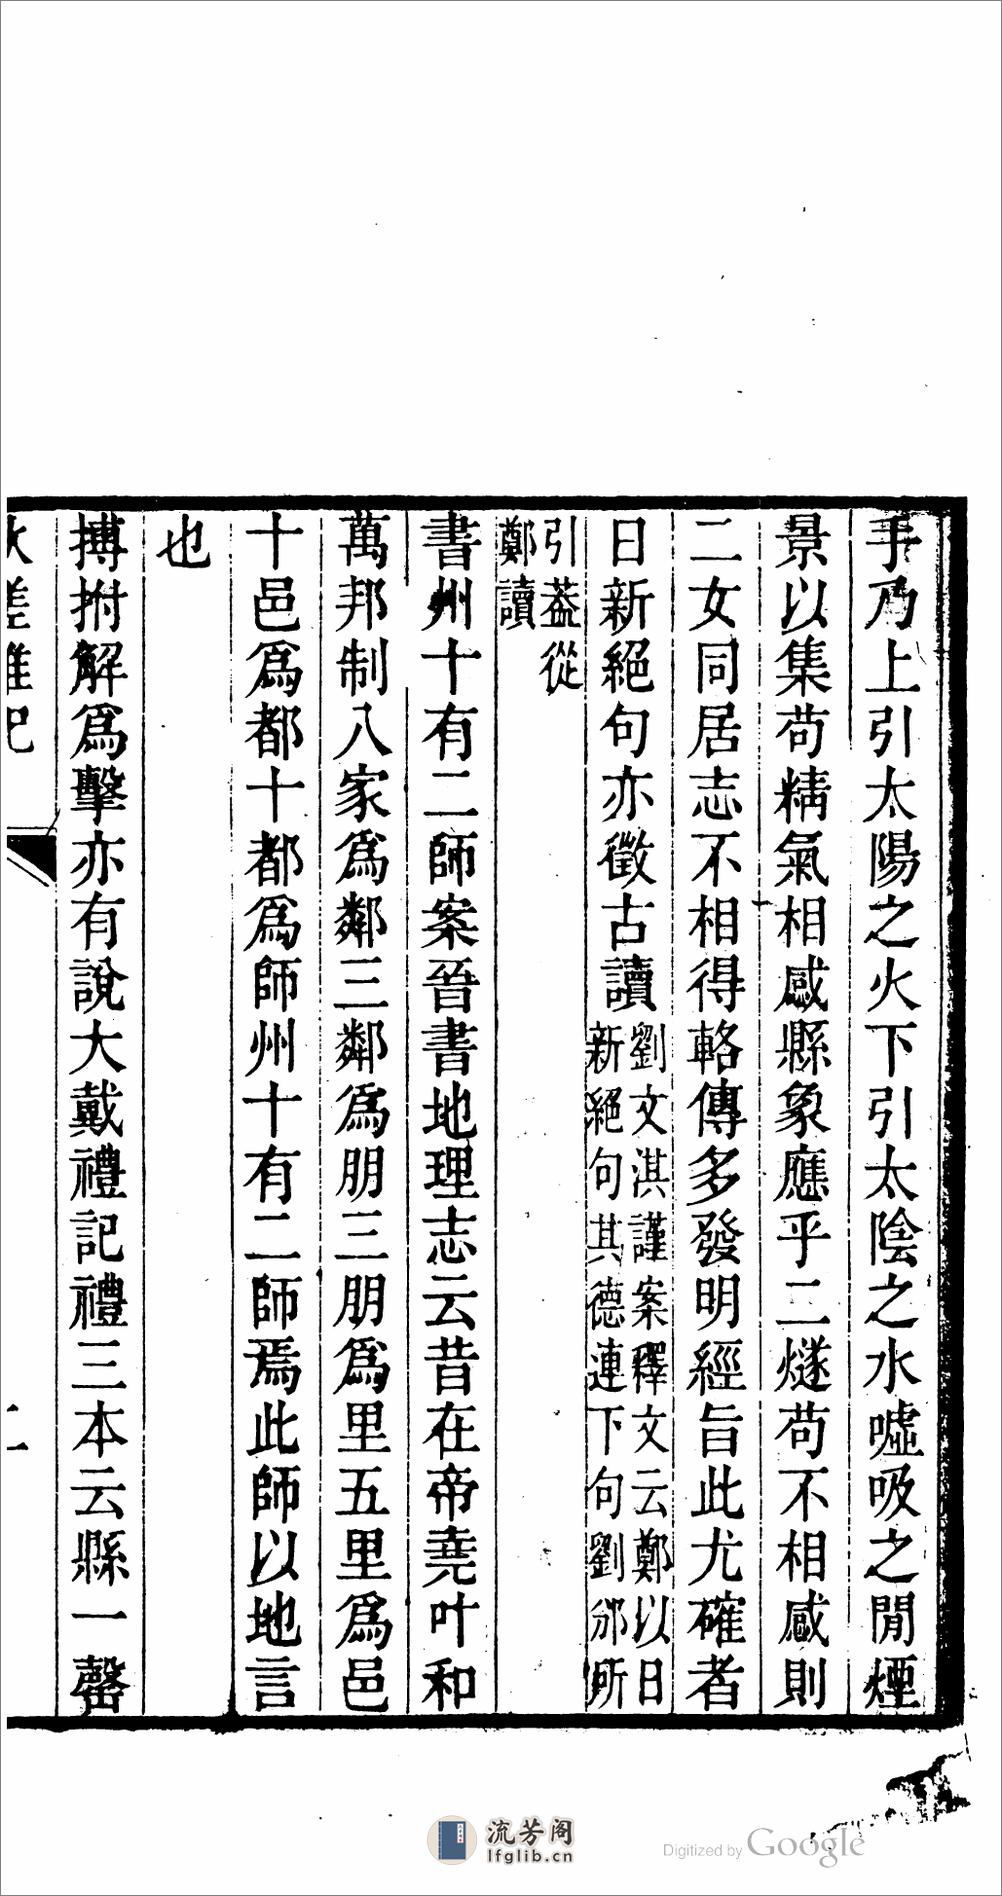 手乃上引太陽之火下引太陰之水噓吸之閒煙
景以集苟精氣相感縣象應乎二燧苟不相感則
二女同居志不相得輅傳多發明經旨此尤確者
日新絕句亦徵古讀劉文淇謹案釋文云鄭以日
新絕句其德連下句劉邠所
引葢從
鄭讀
書州十有二師案晉書地理志云昔在帝堯叶和
萬邦制八家爲鄰三鄰爲朋三朋爲里五里爲邑
十邑爲都十都爲師州十有二師焉此師以地言
也
搏拊解爲擊亦有說大戴禮記禮三本云縣一罄
流芳阁
lfglib.cn
Digitized by Google